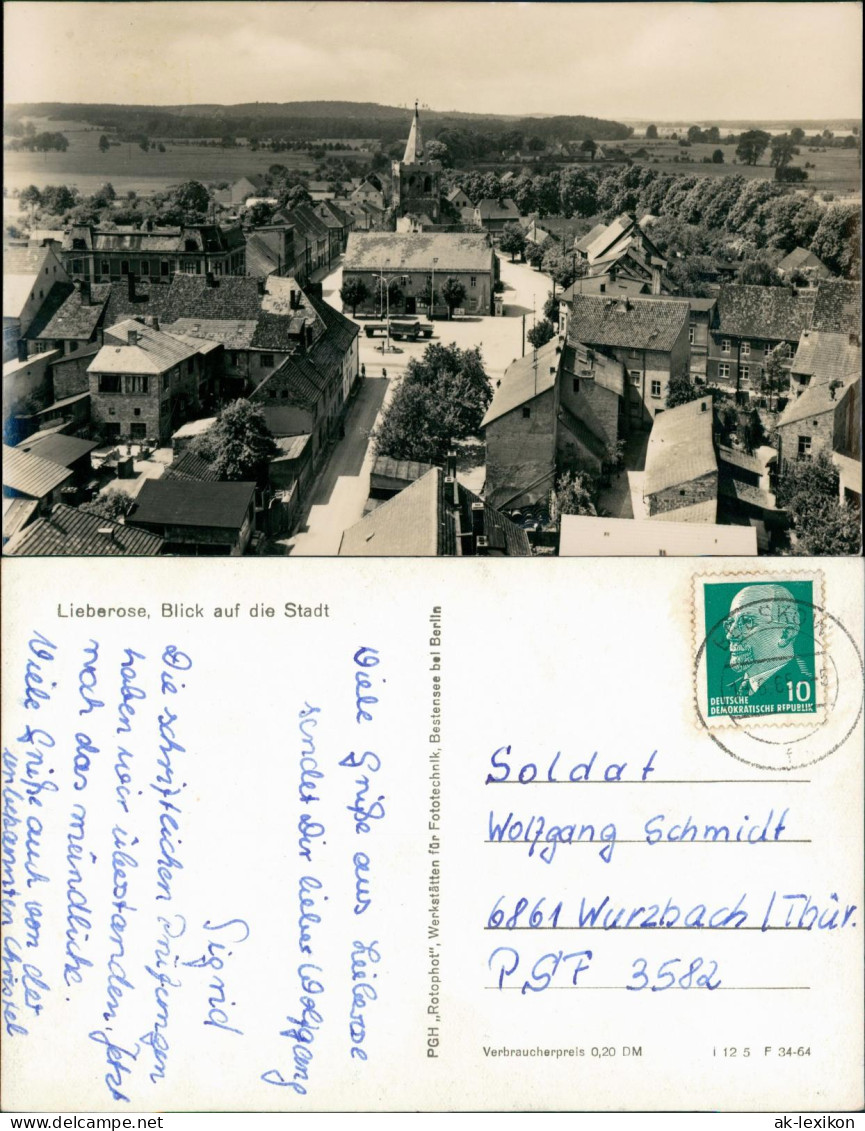 Lieberose, Blick auf die Stadt
Viele Grüße aus Lieberose
sendet Dir lieber Wolfgang
Sigrid
Die schriftlichen Prüfungen
haben wir überstanden. Jetzt
noch das mündliche.
Viele Grüße auch von der
unbekannten Christel
PGH „Rotophot", Werkstätten für Fototechnik, Bestensee bei Berlin
DEUTSCHE
DEMOKRATISCHE REPUBLIK
10
Soldat
Wolfgang Schmidt
6861 Wurzbach/Thür.
PSF 3582
Verbraucherpreis 0,20 DM
I 12 5 F 34-64
ak-lexikon